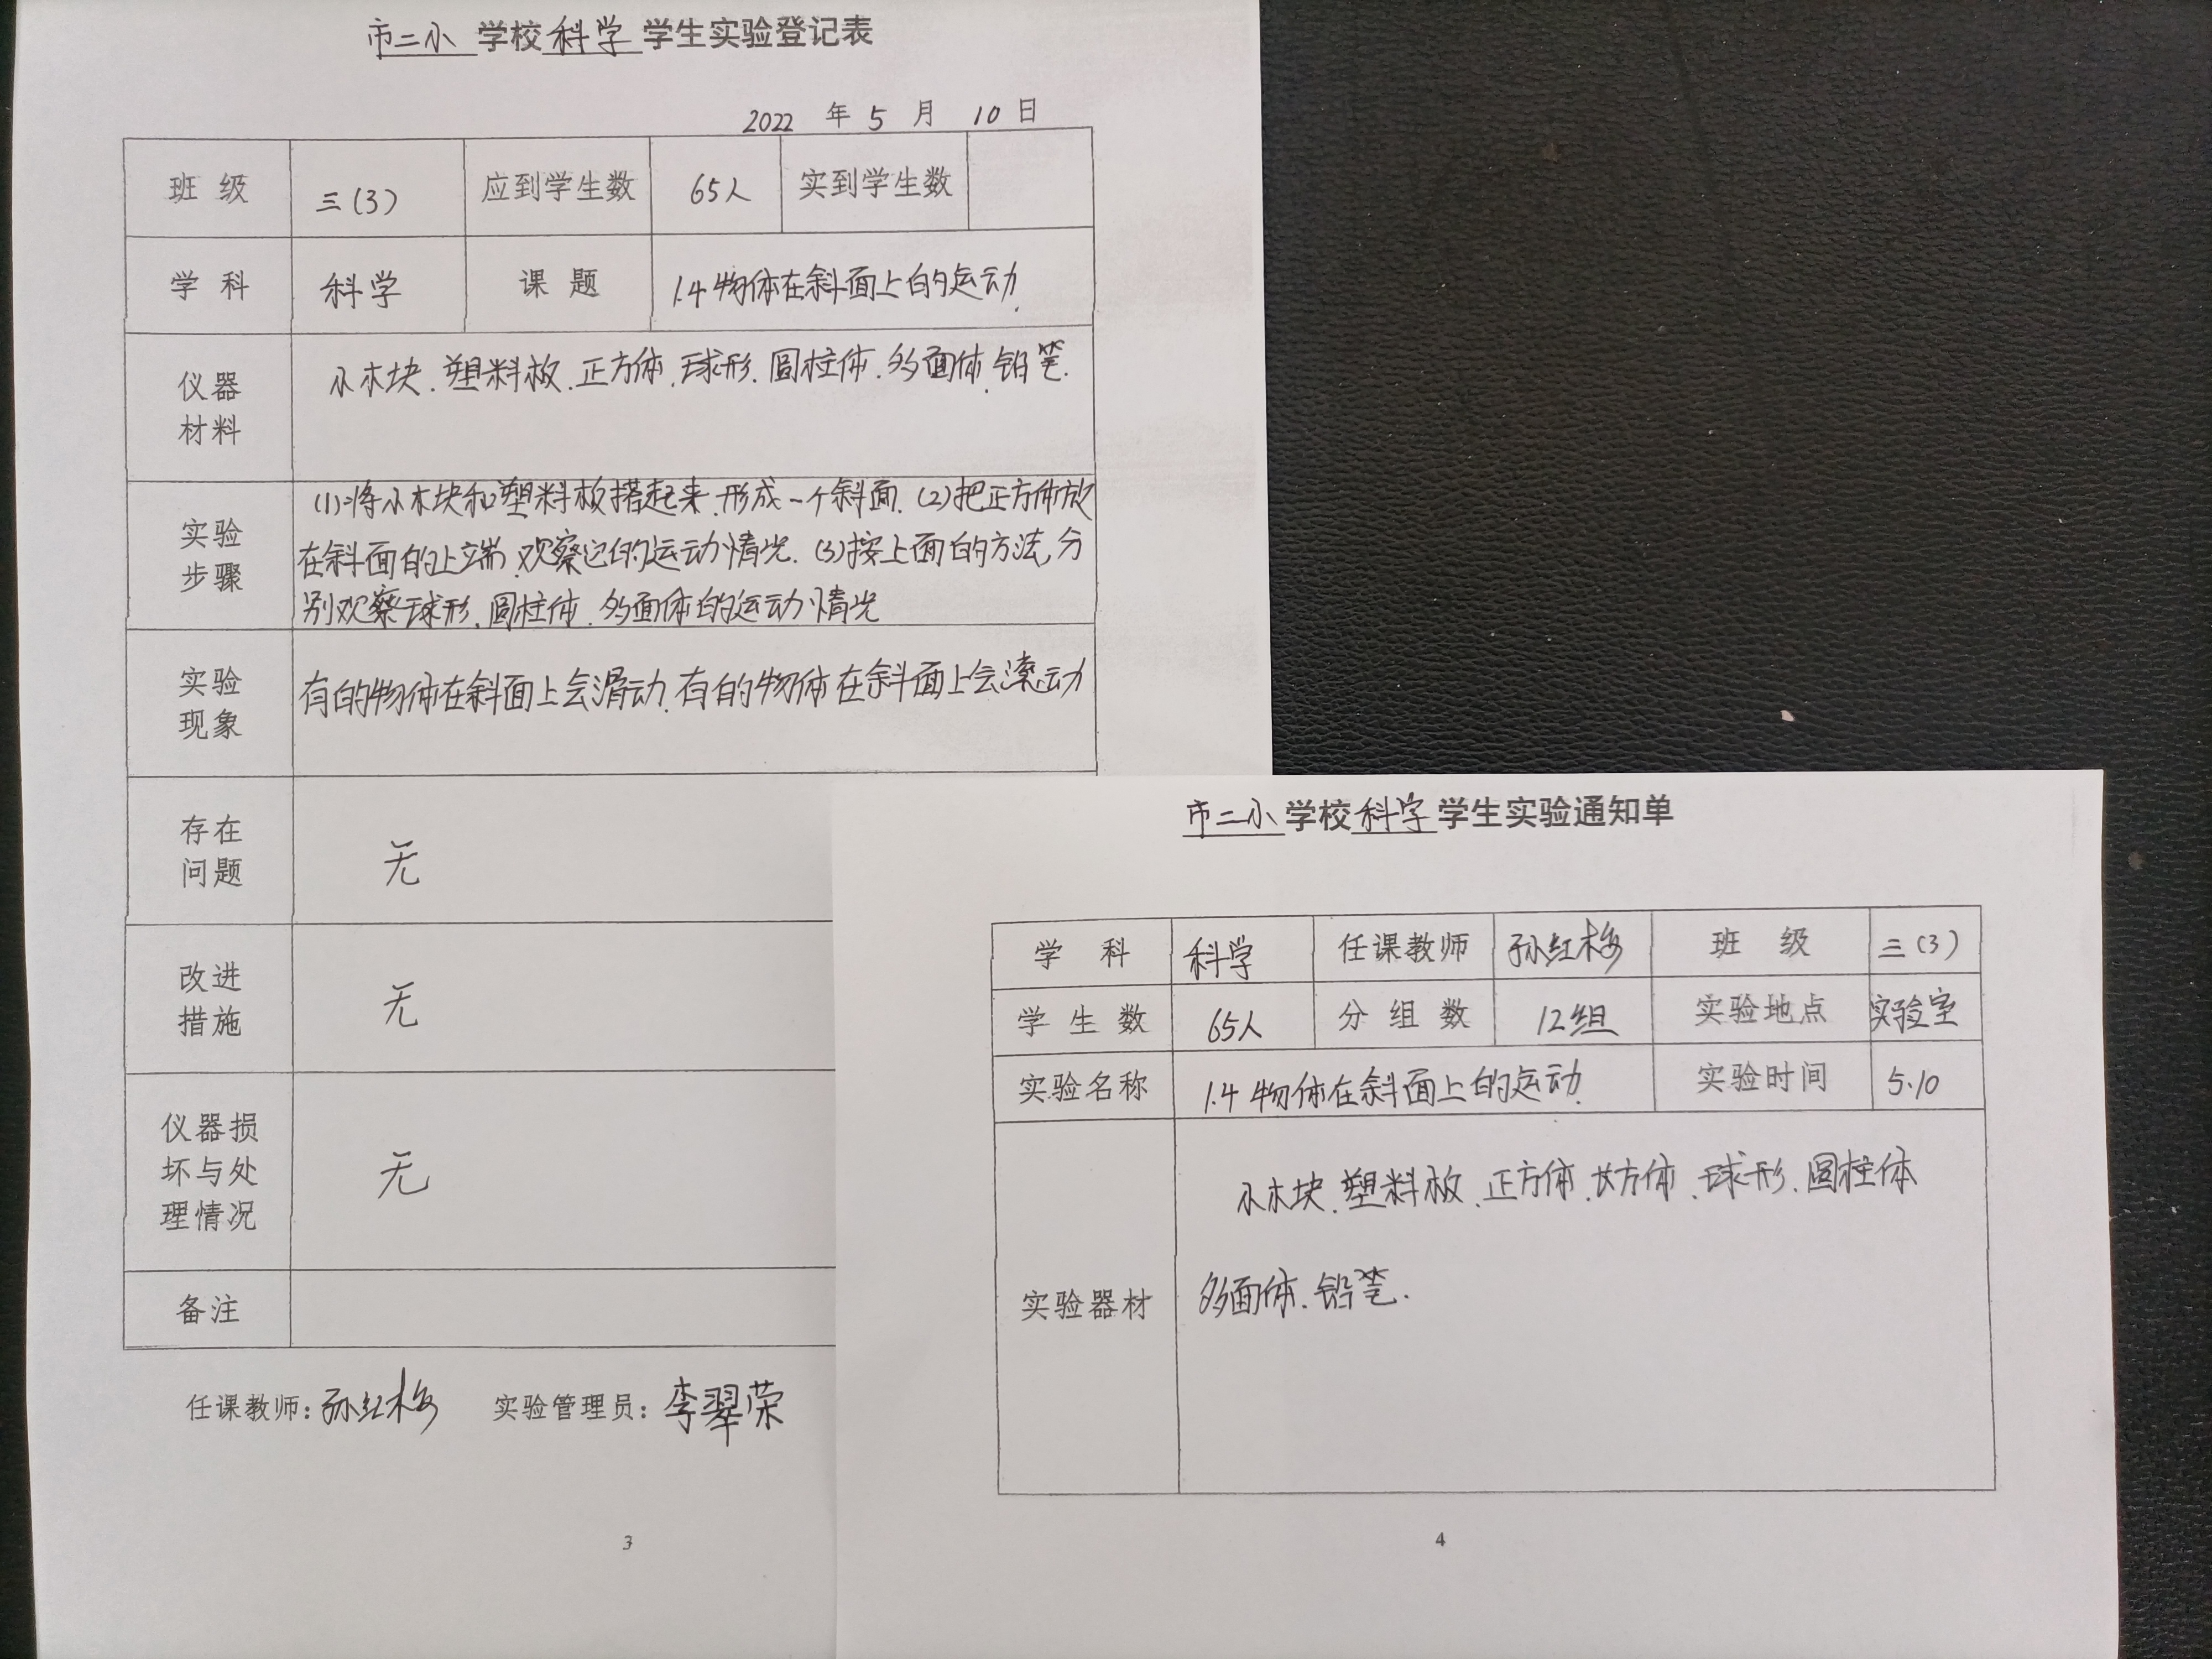 市二小 学校 科学 学生实验登记表
2022 年 5 月 10 日
班 级 三(3) 应到学生数 65人 实到学生数
学 科 科学 课 题 1.4 物体在斜面上的运动.
仪器
材料
小木块.塑料板.正方体.球形.圆柱体.多面体.铅笔.
实验
步骤
(1)将小木块和塑料板搭起来.形成一个斜面.(2)把正方体放
在斜面的上端.观察它的运动情况.(3)按上面的方法,分
别观察球形.圆柱体.多面体的运动情况
实验
现象
有的物体在斜面上会滑动.有的物体在斜面上会滚动
存在
问题
无
改进
措施
无
仪器损
坏与处
理情况
无
备注
任课教师:孙红梅 实验管理员:李翠荣
3
市二小学校科学学生实验通知单
学 科 科学 任课教师 孙红梅 班 级 三(3)
学 生 数 65人 分 组 数 12组 实验地点 实验室
实验名称 1.4 物体在斜面上的运动. 实验时间 5.10
实验器材
小木块.塑料板.正方体.长方体.球形.圆柱体
多面体.铅笔.
4